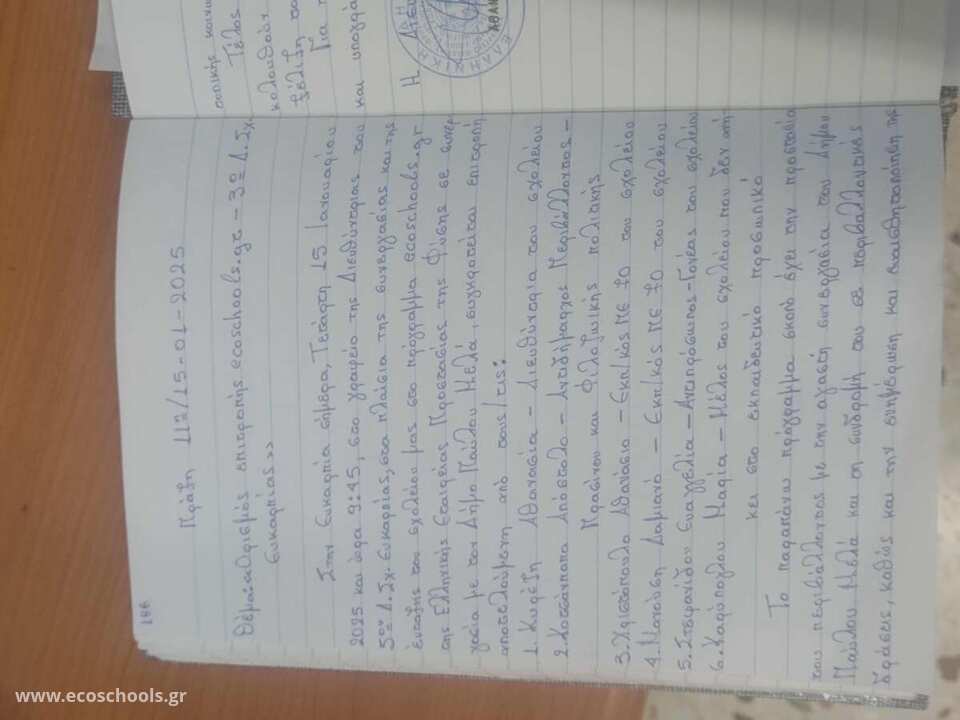 τοπικής κοινω
Τέλος
και υπογρά
Η Διευ
ΑΘΑΝ
186
Πράξη 112/15-01-2025
Θέμα: «Ορισμός επιτροπής ecoschools.gr - 3ο Δ. Σχ.
Ευκαρπίας»
Στην Ευκαρπία σήμερα, Τετάρτη 15 Ιανουαρίου
2025 και ώρα 9:45, στο γραφείο της Διευθύντριας του
Δ. Σχ. Ευκαρπίας, στα πλαίσια της συνεργασίας και της
ένταξης του σχολείου μας στο πρόγραμμα ecoschools.gr
της Ελληνικής Εταιρείας Προστασίας της Φύσης σε συνερ
γασία με τον Δήμο Παύλου Μελά, συγκροτείται επιτροπή
αποτελούμενη από τους/τις:
1. Κυρέζη Αθανασία - Διευθύντρια του σχολείου
2. Αποστόλο - Αντιδήμαρχος Περιβάλλοντος -
Πρασίνου και Φιλοζωικής πολιτικής
3. Χριστόπουλο Αθανάσιο - Εκπ/κός ΠΕ του σχολείου
4. Δαμιανό - Εκπ/κός ΠΕ του σχολείου
5. Στεφανίδου Ευαγγελία - Αντιπρόσωπος-Γονέας του σχολείου
6. Μαρία - Μέλος του σχολείου που δεν ανή-
κει στο εκπαιδευτικό προσωπικό
Το παραπάνω πρόγραμμα σκοπό έχει την προστασία
του περιβάλλοντος με την αγαστή συνεργασία του Δήμου
Παύλου Μελά και τη συνδρομή του σε περιβαλλοντικές
δράσεις, καθώς και την ενημέρωση και ευαισθητοποίηση της
www.ecoschools.gr